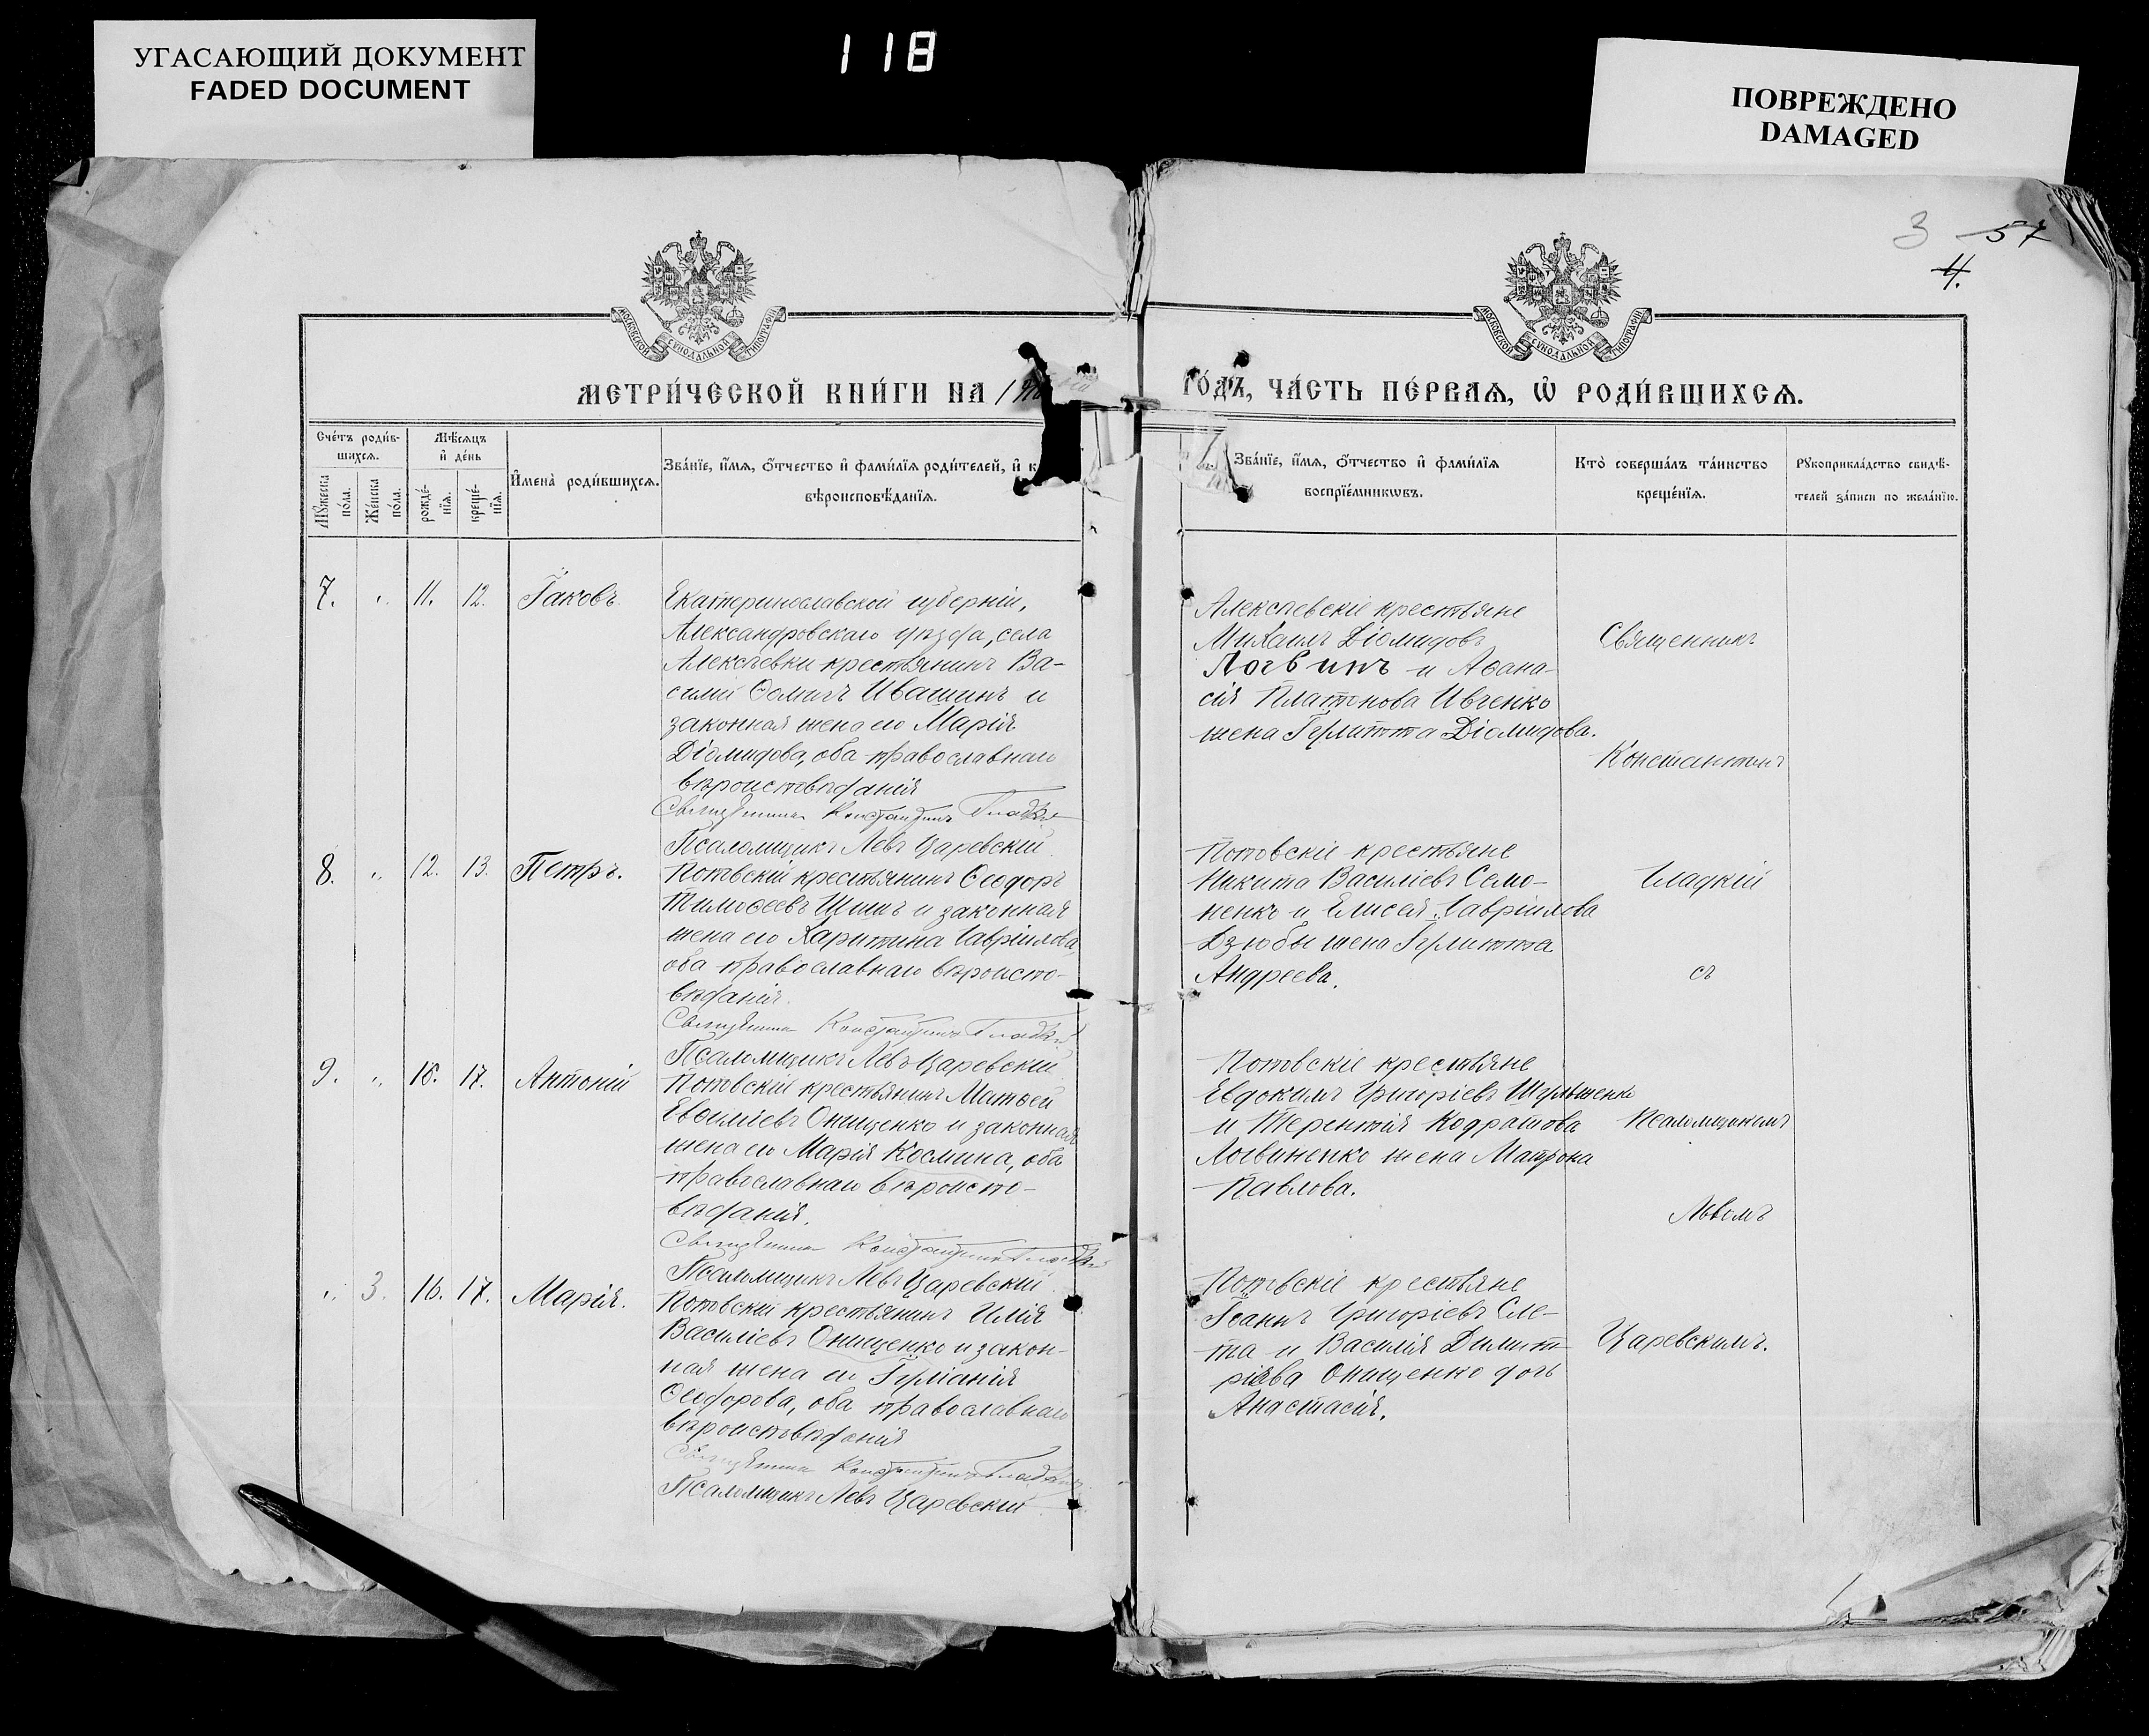 УГАСАЮЩИЙ ДОКУМЕНТ
FADED DOCUMENT
118
ПОВРЕЖДЕНО
DAMAGED
3 57
4.
МОСКОВСКОЙ СѴНОДАЛЬНОЙ ТИПОГРАФІИ
МОСКОВСКОЙ СѴНОДАЛЬНОЙ ТИПОГРАФІИ
МЕТРИ́ЧЕСКОЙ КНИ́ГИ НА 19
ГО́ДЪ, ЧА́СТЬ ПЕ́РВАѦ, Ѡ҆ РОДИ́ВШИХСѦ.
Сче́тъ роди́в-
шихсѧ.
Мꙋ́жеска по́ла.
Же́нска по́ла.
Мѣ́сѧцъ
и҆ де́нь
рожде́-
нїѧ.
креще́-
нїѧ.
И҆мена̀ роди́вшихсѧ.
Зва́нїе, и҆́мѧ, ѻ҆́тчество и҆ фами́лїѧ роди́телей, и҆ к
вѣроисповѣ́данїѧ.
Зва́нїе, и҆́мѧ, ѻ҆́тчество и҆ фами́лїѧ
воспрїе́мникѡвъ.
Кто̀ соверша́лъ та́инство
креще́нїѧ.
Рꙋкоприкла́дство свидѣ́-
телей за́писи по жела́нїю.
7. „ 11. 12. Іаковъ.
Екатеринославской губерніи,
Александровскаго уѣзда, села
Алексѣевки крестьянинъ Ва-
силій Ѳомичъ Ивашинъ и
законная жена его Марія
Діомидова, оба православнаго
вѣроисповѣданія
Священникъ Константинъ Гладкій
Псаломщикъ Левъ Царевскій
Алексѣевскіе крестьяне
Михаилъ Діомидовъ
Логвинъ и Аѳана-
сія Платонова Ивченко
жена Іулитта Діомидова.
Священникъ
Константинъ
8. „ 12. 13. Петръ.
Поповскій крестьянинъ Ѳеодоръ
Тимоѳеевъ Шишъ и законная
жена его Харитина Гавріилова,
оба православнаго вѣроиспо-
вѣданія.
Священникъ Константинъ Гладкій
Псаломщикъ Левъ Царевскій
Поповскіе крестьяне
Никита Василіевъ Семо-
ненко и Елисея Гавріилова
Дзюбы жена Іулитта
Андреева.
Гладкій
съ
9. „ 16. 17. Антоній
Поповскій крестьянинъ Матѳей
Евѳиміевъ Онищенко и законная
жена его Марія Космина, оба
православнаго вѣроиспо-
вѣданія.
Священникъ Константинъ Гладкій
Псаломщикъ Левъ Царевскій
Поповскіе крестьяне
Евдокимъ Григоріевъ Шульженко
и Терентія Кодратова
Логвиненко жена Матрона
Павлова.
Псаломщикомъ
Львомъ
„ 3. 16. 17. Марія.
Поповскій крестьянинъ Илія
Василіевъ Онищенко и закон-
ная жена его Іуліанія
Ѳеодорова, оба православнаго
вѣроисповѣданія
Священникъ Константинъ Гладкій
Псаломщикъ Левъ Царевскій
Поповскіе крестьяне
Іоаннъ Григоріевъ Сле-
та и Василія Димит-
ріева Онищенко дочь
Анастасія.
Царевскимъ.